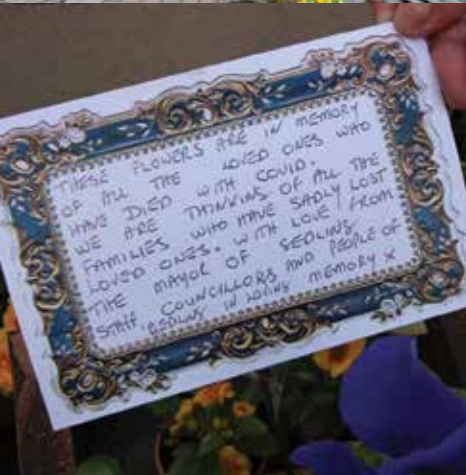 THESE FLOWERS ARE IN MEMORY
OF ALL THE LOVED ONES WHO
HAVE DIED WITH COVID.
WE ARE THINKING OF ALL THE
FAMILIES WHO HAVE SADLY LOST
LOVED ONES. WITH LOVE FROM
THE MAYOR OF GEDLING
STAFF, COUNCILLORS AND PEOPLE OF
GEDLING IN LOVING MEMORY X